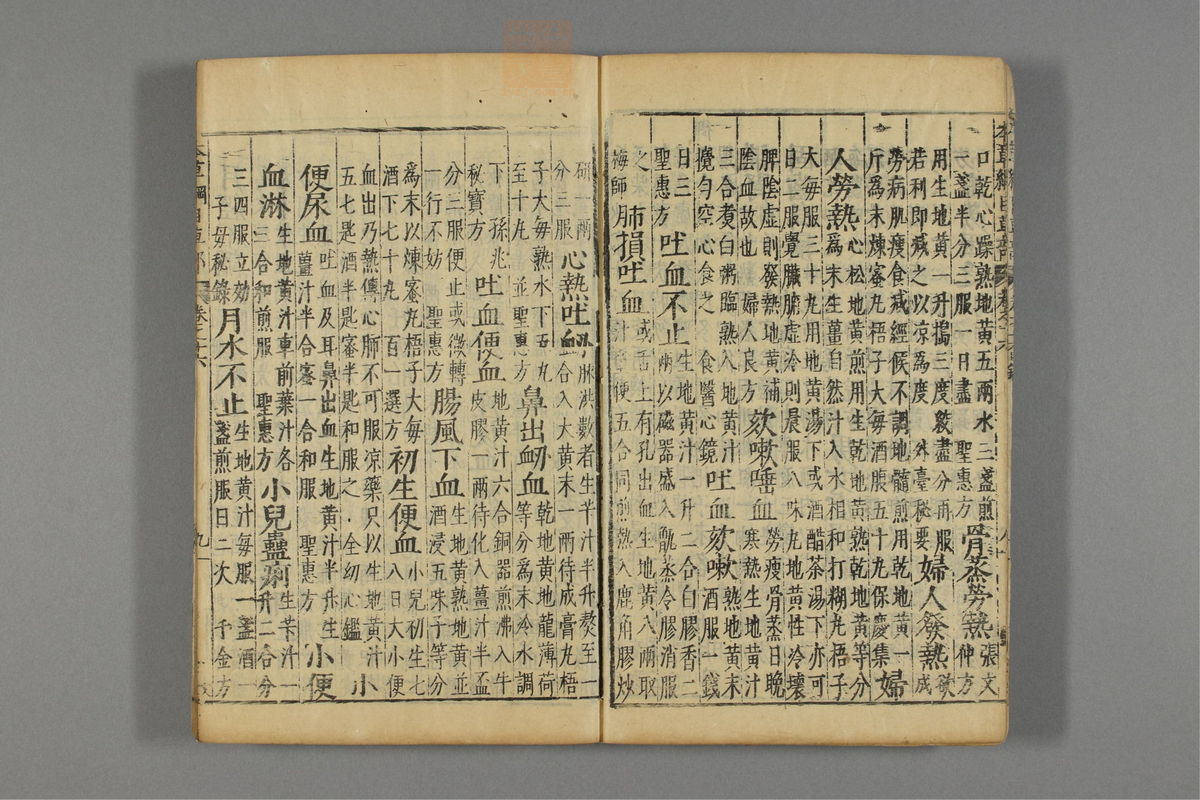 口乾心躁熟地黃五兩水三盞煎一盞半分三服一日盡 聖惠方 骨蒸勞熱 張文仲方
用生地黃一升搗三度絞盡分再服若利即減之以凉為度 外臺秘要 婦人發熱 欲成
勞病肌瘦食减經候不調地髓煎用乾地黃一斤為末煉蜜丸梧子大每酒服五十丸保慶集 婦
人勞熱 心忪地黃煎用生乾地黃熟乾地黃等分為末生薑自然汁入水相和打糊丸梧子
大每服三十丸用地黃湯下或酒醋茶湯下亦可日二服覺臟腑虛冷則晨服八味丸地黃性冷壞
脾陰虛則發熱地黃補陰血故也 婦人良方 欬嗽唾血 勞瘦骨蒸日晚寒熱生地黃汁
三合煑白粥臨熟入地黃汁攪勻空心食之 食醫心鏡 吐血欬嗽 熟地黃末酒服一錢
日三 聖惠方 吐血不止 生地黃汁一升二合白膠香二兩以磁器盛入甑蒸令膠消服
之 梅師 肺損吐血 或舌上有孔出血生地黃八兩取汁童便五合同煎熱入鹿角膠炒
研一兩分三服 心熱吐衂 脉洪數者生苄汁半升熬至一合入大黃末一兩待成膏丸梧
子大每熟水下五丸至十丸 並聖惠方 鼻出衂血 乾地黃地龍薄荷等分為末冷水調
下 孫兆秘寳方 吐血便血 地黃汁六合銅器煎沸入牛皮膠一兩待化入薑汁半盃
分三服便止或微轉一行不妨 聖惠方 腸風下血 生地黃熟地黃並酒浸五味子等分
為末以煉蜜丸梧子大每酒下七十丸 百一選方 初生便血 小兒初生七八日大小便
血出乃熱傳心肺不可服凉藥只以生地黃汁五七匙酒半匙蜜半匙和服之 全幼心鑑 小
便尿血 吐血及耳鼻出血生地黃汁半升生薑汁半合蜜一合和服 聖惠方 小便
血淋 生地黃汁車前葉汁各三合和煎服 聖惠方 小兒蠱痢 生苄汁一升二合分
三四服立効 子母秘錄 月水不止 生地黃汁每服一盞酒一盞煎服日二次 千金方